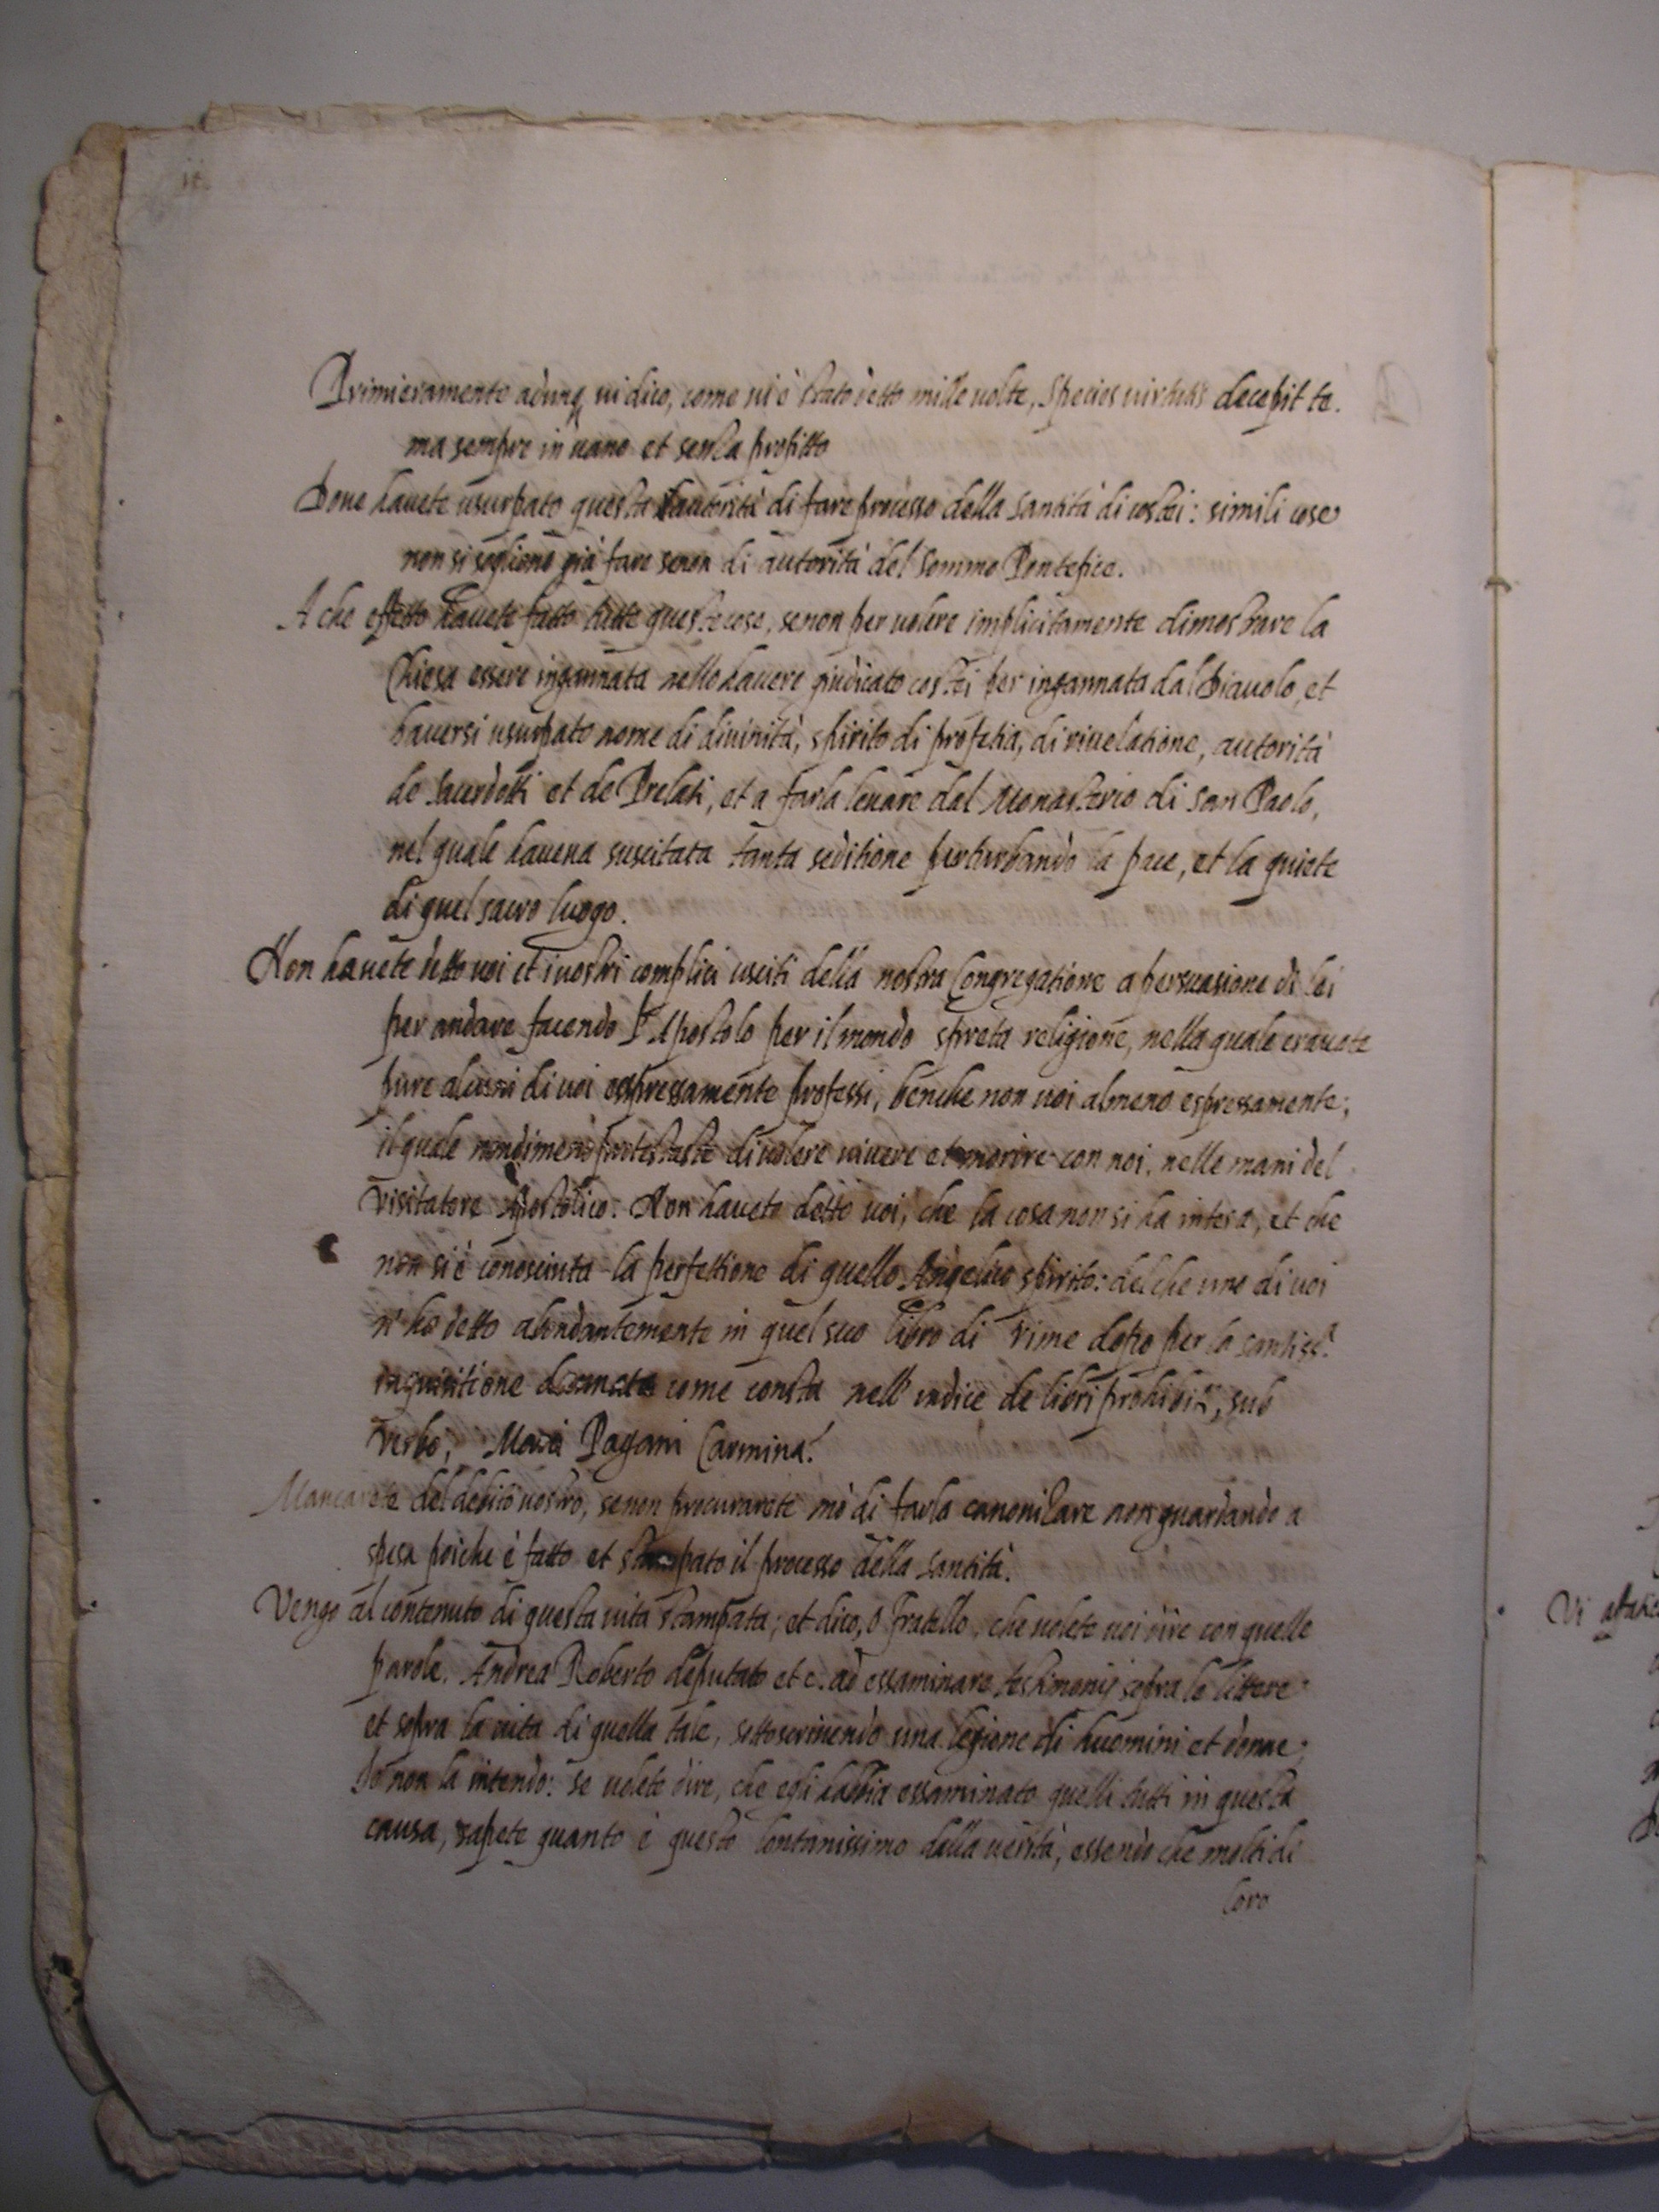 Primieramente adunq vi dico, come vi è stato detto mille uolte, Species uirtutis decepit te.
ma sempre in uano et senza profitto
Doue hauete usurpato questa autorità di fare processo della santità di costei: simili cose
non si sogliono già fare senon di autorità del sommo Pontefice.
A che effetto hauete fatto tutte queste cose, senon per uolere implicitamente dimostrare la
Chiesa essere ingannata nello hauere giudicato costei per ingannata dal Diauolo, et
hauersi usurpato nome di diuinità, spirito di profetia, di riuelatione, autorità
de sacerdotti et de Prelati, et a farla leuare dal Monasterio di san Paolo,
nel quale haueua suscitata tanta seditione perturbando la pace, et la quiete
di quel sacro luogo.
Non hauete detto uoi et i uostri complici usciti della nostra Congregatione a persuasione di lei
per andare facendo l'Apostolo per il mondo spreta religione, nella quale erauate
pure alcuni di uoi espressamente professi, benche non uoi almeno espressamente;
il quale nondimeno protestaste di uolere uiuere et morire con noi, nelle mani del
Visitatore Apostolico. Non hauete detto uoi, che la cosa non si ha intesa, et che
non si è conosciuta la perfettione di quello Angelico spirito: del che uno di uoi
n'ha detto abondantemente in quel suo libro di rime dopo per la santiss.a
inquisitione come consta nell'indice de libri prohibiti, sub
verbo, Marci Pagani Carmina.
Mancarete del debito uostro, senon procurarete mò di farla canonizare non guardando a
spesa poiche è fatto et stampato il processo della santità.
Vengo al contenuto di questa uita stampata; et dico, o fratello, che uolete uoi dire con quelle
parole. Andrea Roberto deputato et c. ad essaminare testimonij sopra le littere
et sopra la uita di quella tale, sottoscriuendo una legione di huomini et donne;
Io non la intendo: se uolete dire, che egli habbia essaminato quelli tutti in questa
causa, sapete quanto è questo lontanissimo dalla uerità, essendo che molti di
loro
Vi